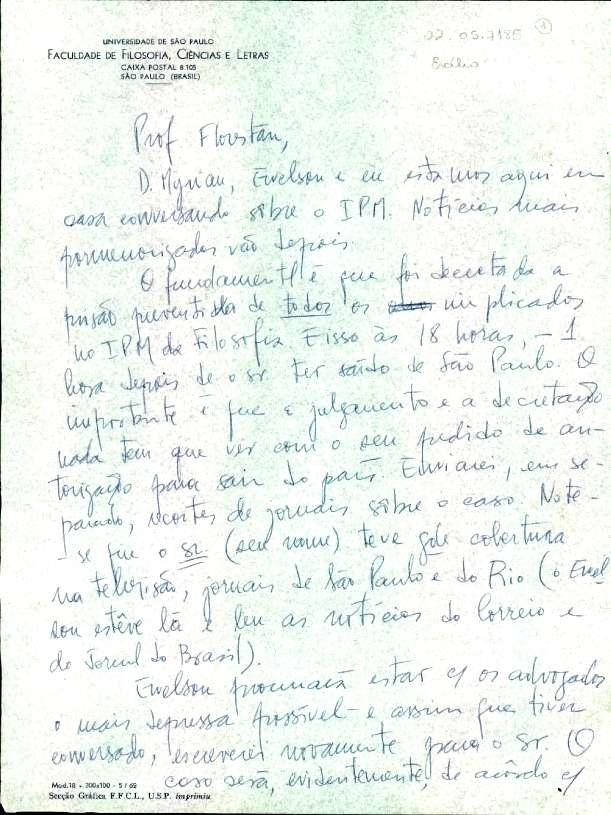 UNIVERSIDADE DE SÃO PAULO
FACULDADE DE FILOSOFIA, CIÊNCIAS E LETRAS
CAIXA POSTAL 8.105
SÃO PAULO (BRASIL)
02.05.7185
1
Prof Florestan,
D. Myrian, Ewelson e eu estamos aqui em
casa conversando sôbre o IPM. Notícias mais
pormenorizadas vão depois.
O fundamental é que foi decretada a
prisão preventiva de todos os implicados
no IPM da Filosofia. E isso às 18 horas, – 1
hora depois de o sr. ter saído de São Paulo. O
importante é que o julgamento e a decretação
nada tem que ver com o seu pedido de au-
torização para sair do país. Enviarei, em se-
parado, recortes de jornais sôbre o caso. Note-
-se que o sr. (seu nome) teve gde cobertura
na televisão, jornais de São Paulo e do Rio (o Ewel
son estêve lá e leu as notícias do Correio e
do Jornal do Brasil).
Ewelson procurará estar c/ os advogados
o mais depressa possível – e assim que tiver
conversado, escreverei novamente para o sr. (O
caso será, evidentemente, de acôrdo c/
Mod.18 - 300x100 - 5/62
Secção Gráfica F.F.C.L., U.S.P. imprimiu